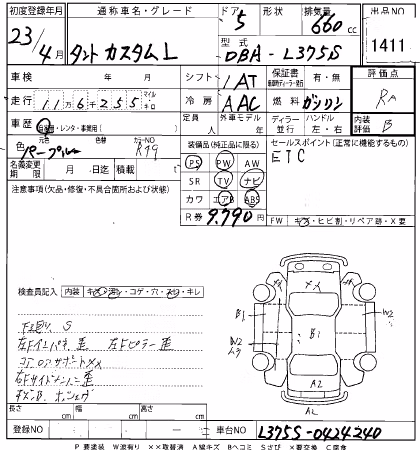 初度登録年月 通称車名・グレード ドア 形状 排気量 出品NO
23/4月 タント カスタム L 5 660cc 1411
型式 DBA-L375S
車検 年 月 シフト 1AT 保証書 有・無 評価点
走行 11万6千255 マイル キロ 冷房 AAC 燃料 ガソリン RA
車歴 自家用・レンタ・事業用( ) 定員 人 外車モデル 年 ディーラー 並行 ハンドル 左・右 内装評価 B
色 元色 パープル 色替 カラーNO R49 装備品(純正品に限る) セールスポイント(正常に機能するもの)
PS PW AW ETC
名義変更期限 月 日迄 積載 SR TV ナビ
注意事項(欠品・修復・不具合箇所および状態) カワ エアB ABS
R券 9.790円
FW キズ・ヒビ割・リペア跡・X要
検査員記入 内装 キズ・汚レ・コゲ・穴・スレ・キレ
下廻り S
左Fインパネ歪 左Fピラー歪
コアロアサポートXX
右Fサイドメンバー歪
B1 W2 ムラ B1 W2 A2 AL
長さ cm 幅 cm 高さ cm
登録NO 車台NO L375S-0424240
P 要塗装 W波有り ××取替済 A線キズ Bヘコミ Sさび X要交換 C腐食